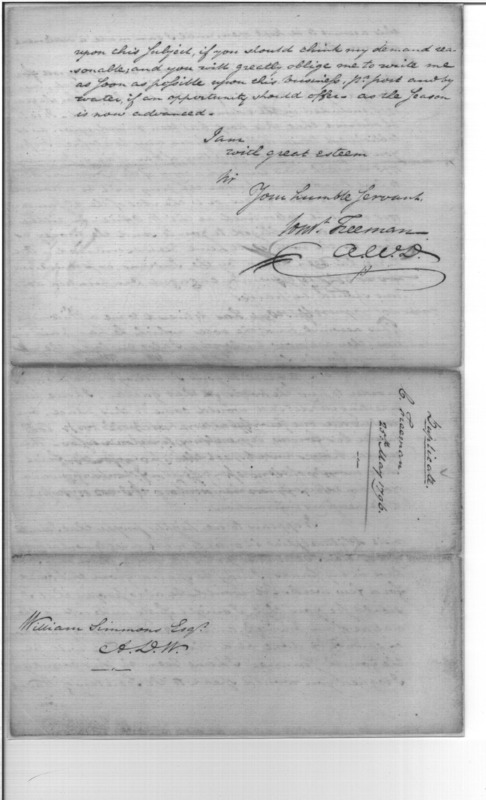 upon this subject, if you should think my demand rea-
sonable, and you will greatly oblige me to write me
as soon as possible upon this business, pr. post and by
water, if an opportunity should offer. as the season
is now advanced.
I am
with great esteem
Sir
Your humble Servant.
Const. Freeman
A.W.D.
Duplicate.
C. Freeman.
25th May 1796.
William Simmons Esqr.
A.D.W.